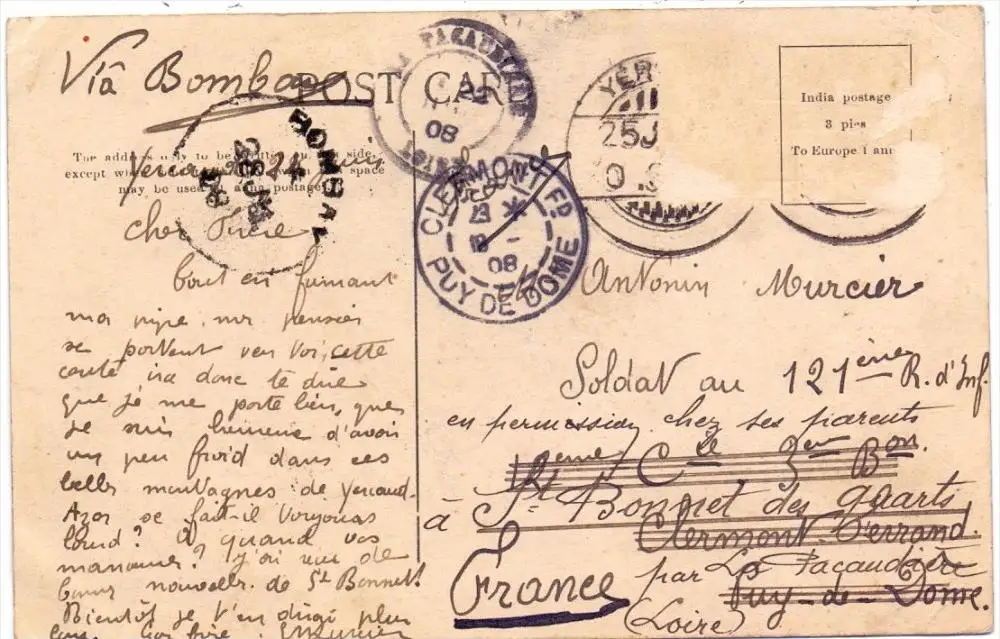 Viâ Bombay
POST CARD
India postage
3 pies
To Europe 1 ann
The address only to be written on this side
except when space
may be used postage
BOMBAY
LA PACAUDIERE
22
08
LOIRE
CLERMONT-FD
08
PUY DE DOME
YER
25 J
Yercaud 24 juin
cher frère
Tout en fumant
ma pipe, mes pensées
se portent vers toi, cette
carte ira donc te dire
que je me porte bien, que
je suis heureux d'avoir
un peu froid dans ces
belles montagnes de Yercaud.
Azor se fait-il toujours
lourd? A quand vos
manœuvres? j'ai eu de
bonnes nouvelles de St Bonnet!
Bientôt je t'en dirai plus
long. Ton frère. EMurcier
Antonin Murcier
Soldat au 121ème R. d'Inf.
en permission chez ses parents
Cie 3ème Bon.
à St Bonnet des quarts
Clermont-Ferrand.
par La Pacaudière
France
Puy-de-Dome.
(Loire)